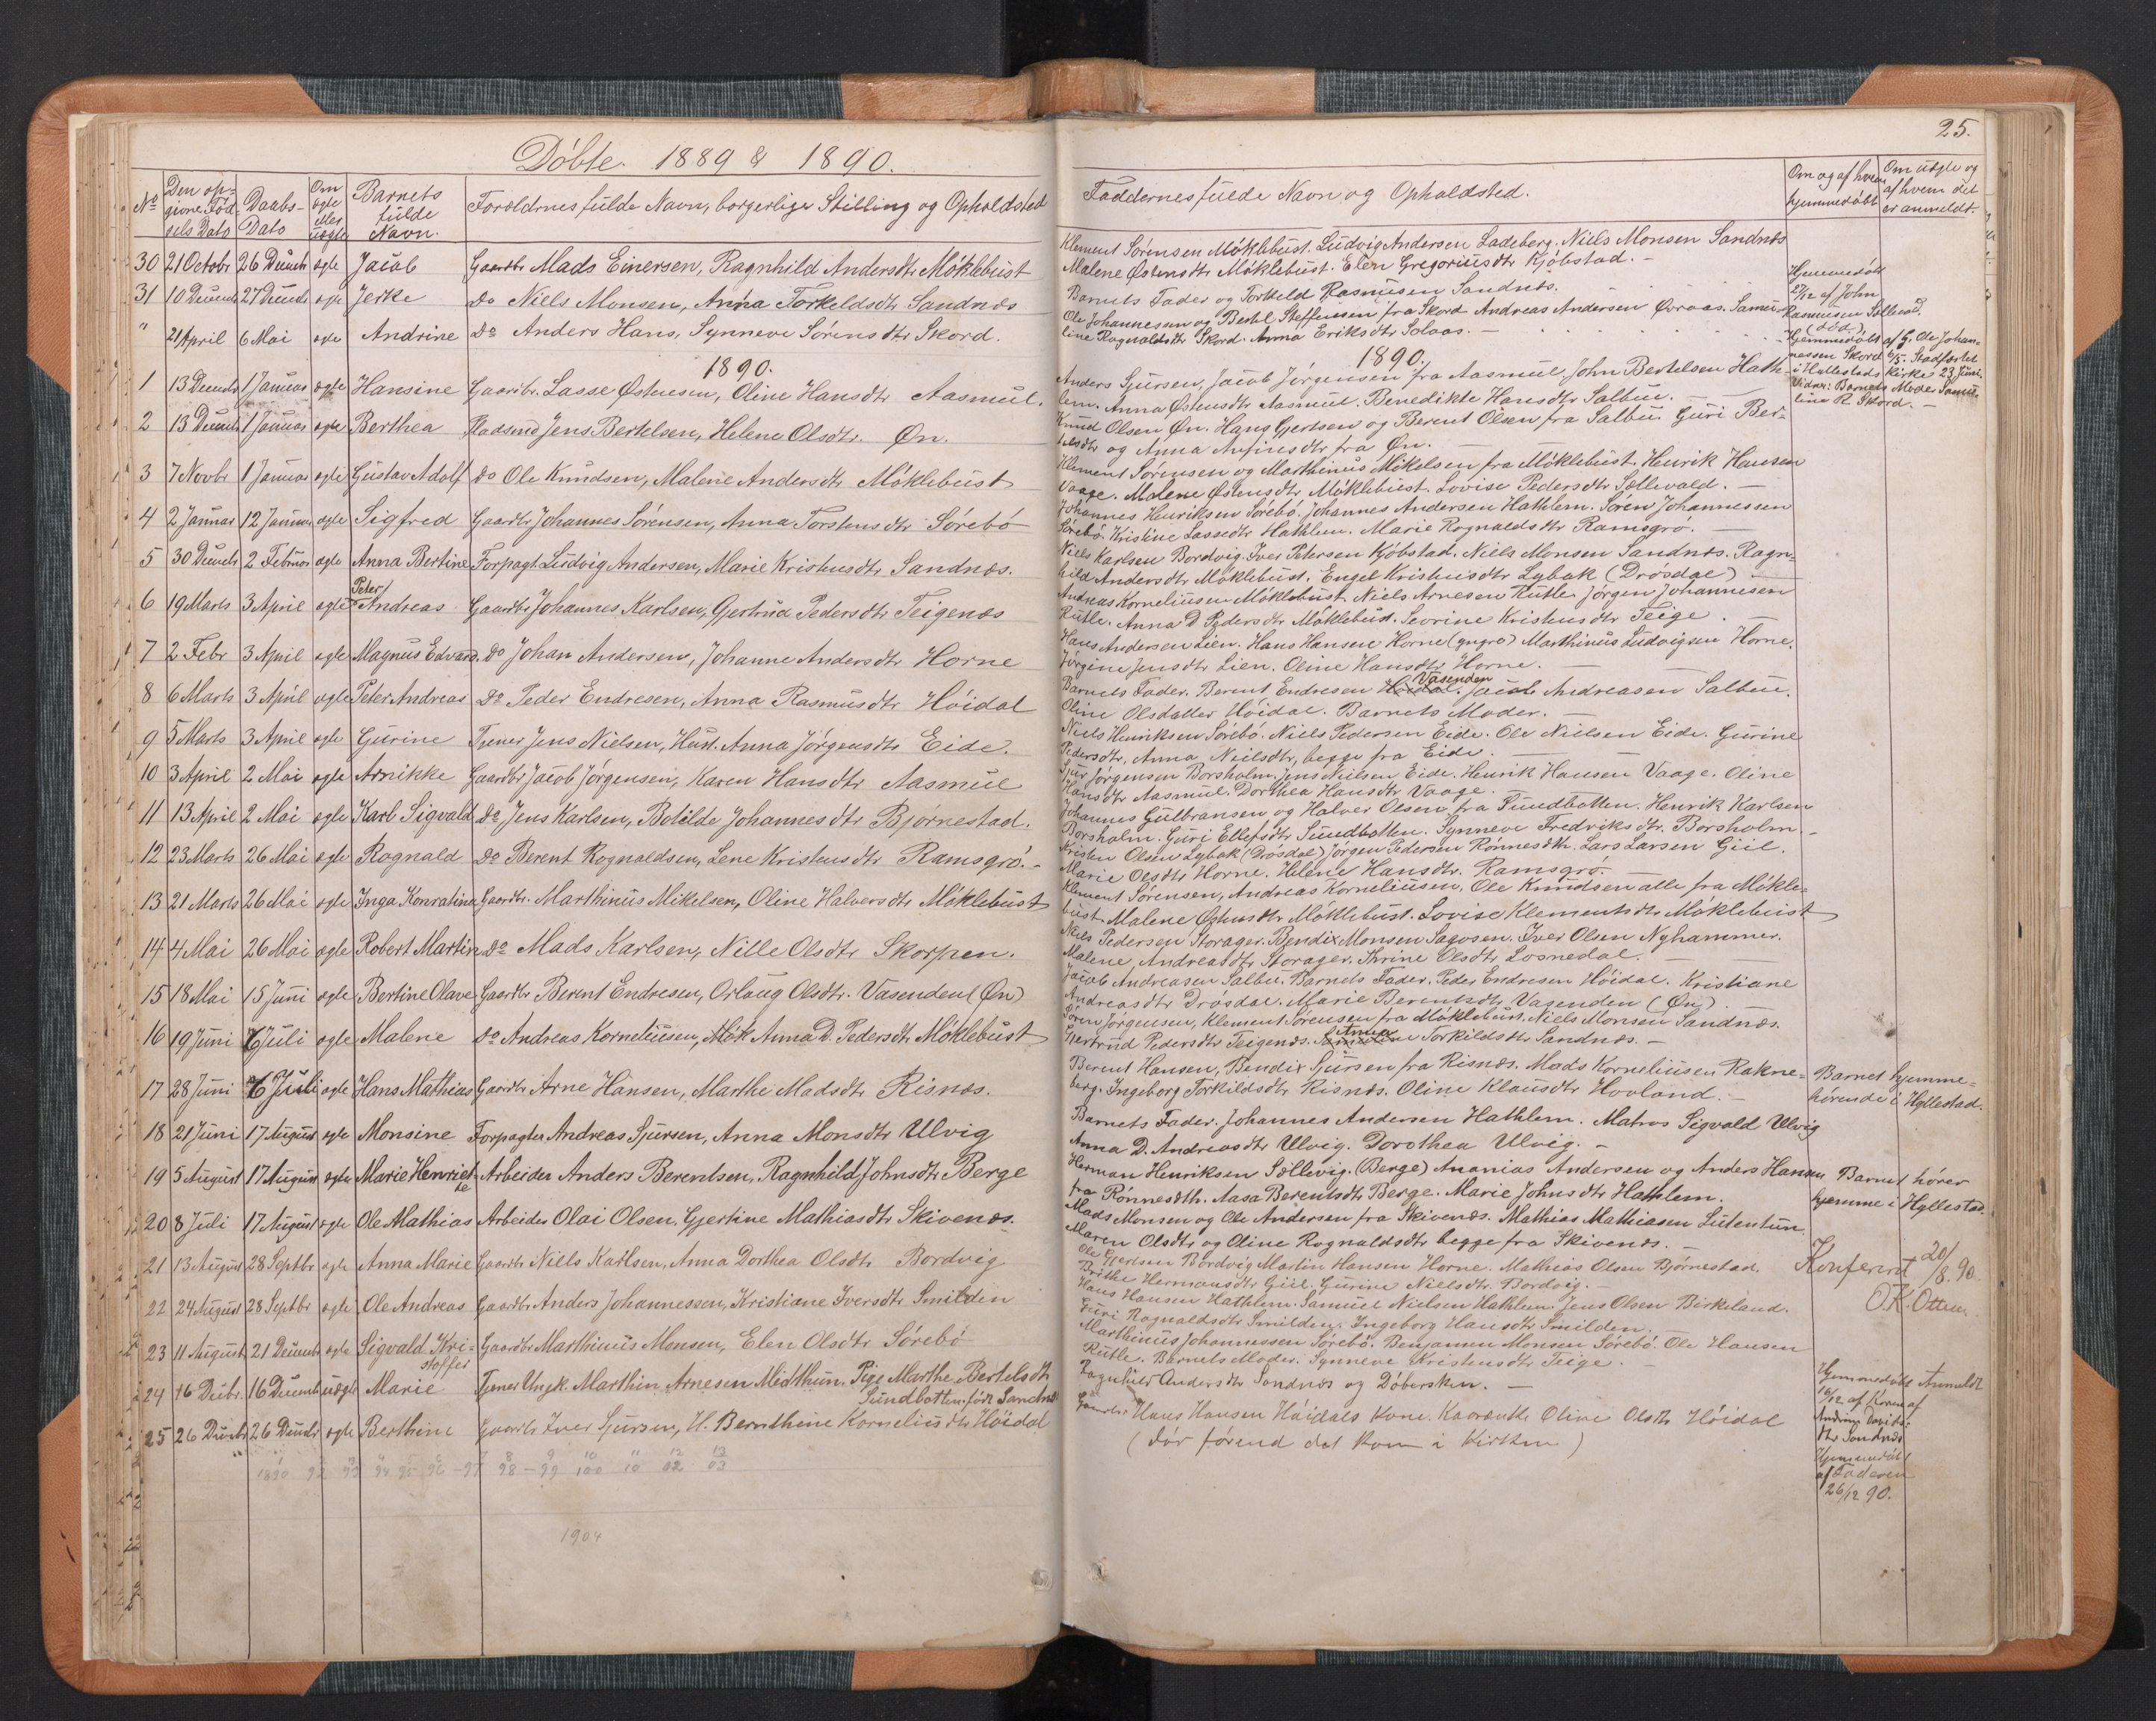 25.
Döbte. 1889 & 1890.
No
Den op-
givne Föd-
sels Dato
Daabs-
Dato
Om
ægte
eller
uægte
Barnets
fulde
Navn.
Forældrnes fulde Navn, borgerlige Stilling og Opholdsted
30 21 Octobr 26 Decemb ægte Jacob Gaardbr Mads Einersen, Ragnhild Andersdtr Möklebust
31 10 Decemb 27 Decemb ægte Jerke Do Niels Monsen, Anna Torkeldsdtr Sandnæs
" 21 April 6 Mai ægte Andrine Do Anders Hans, Synneve Sörensdtr Skord.
1890.
1 13 Decemb 1 Januar ægte Hansine Gaardbr. Lasse Østensen, Oline Hansdtr Aasmul.
2 13 Decemb 1 Januar ægte Berthea Pladsmd Jens Bertelsen, Helene Olsdtr. Øn.
3 7 Novbr 1 Januar ægte Gustav Adolf do Ole Knudsen, Malene Andersdtr Möklebust
4 2 Januar 12 Januar ægte Sigfred Gaardbr Johannes Sörensen, Anna Torstensdtr Sörebö
5 30 Decemb 2 Februar ægte Anna Bertine Forpagt. Ludvig Andersen, Marie Kristensdtr Sandnæs.
Peter
6 19 Marts 3 April ægte Andreas Gaardbr Johannes Karlsen, Gjertrud Pedersdtr Teigenæs
7 2 Febr 3 April ægte Magnus Edvard. Do Johan Andersen, Johanne Andersdtr Horne
8 6 Marts 3 April ægte Peter Andreas Do Peder Endresen, Anna Rasmusdtr Höidal
9 5 Marts 3 April ægte Gurine Tjener Jens Nielsen, Hust. Anna Jörgensdtr Eide.
10 3 April 2 Mai ægte Arnikke Gaardbr Jacob Jörgensen, Karen Hansdtr Aasmul
11 13 April 2 Mai ægte Karl Sigvald Do Jens Karlsen, Botilde Johannesdtr Björnestad.
12 23 Marts 26 Mai ægte Rognald Do Berent Rognaldsen, Lene Kristensdtr Ramsgrö.-
13 21 Marts 26 Mai ægte Inga Konratina Gaardbr. Marthinus Mikelsen, Oline Halversdtr Möklebust
14 4 Mai 26 Mai ægte Robert Martin Do Mads Karlsen, Nille Olsdtr Skorpen.
15 18 Mai 15 Juni ægte Bertine Olave Gaardbr Berent Endresen, Orlaug Olsdtr. Vasenden (Øn)
16 19 Juni 6 Juli ægte Malene do Andreas Korneliusen, Mök Anna D. Pedersdtr Möklebust
17 28 Juni 6 Juli ægte Hans Mathias Gaardbr Arne Hansen, Marthe Madsdtr Risnæs.
18 21 Juni 17 August ægte Monsine Forpagter Andreas Sjursen, Anna Monsdtr Ulvig
19 5 August 17 August ægte Marie Henriet- Arbeider Anders Berentsen, Ragnhild Johnsdtr Berge
te
20 8 Juli 17 August ægte Ole Mathias Arbeider Olai Olsen, Gjertine Mathiasdtr Skivenæs.
21 13 August 28 Septbr ægte Anna Marie Gaardbr Niels Karlsen, Anna Dorthea Olsdtr Bordvig
22 24 August 28 Septbr ægte Ole Andreas Gaardbr Anders Johannessen, Kristiane Iversdtr Smilden
23 11 August 21 Decemb ægte Sigvald Kri- Gaardbr Marthinus Monsen, Elen Olsdtr Sörebö
stoffer
24 16 Decbr. 16 Decemb uægte Marie Tjener Ungk. Marthin Arnesen Midthun. Pige Marthe Bertelsdtr
Sundbotten, föd Sandnæs
25 26 Decbr 26 Decbr ægte Berthine Gaardbr Iver Sjursen, H. Bernthine Korneliusdtr Höidal
1904
Faddernes fulde Navn og Opholdsted.
Om og af hvem
hjemmedöbt
Om uægte og
af hvem det
er anmeldt.
Klement Sörensen Möklebust. Ludvig Andersen Ladeberg. Niels Monsen Sandnæs
Malene Østensdtr Möklebust. Elen Gregoriusdtr Kjöbstad. -
Barnets Fader og Torkeld Rasmusen Sandnæs.
Ole Johannesen og Bertel Steffensen fra Skord Andreas Andersen Øvraas. Samu-
line Rognaldsdtr Skord. Anna Eriksdtr Solaas. -
Hjemmedöbt
27/12 af John
Rasmusen Sellevold.
(död.)
Hjemmedöbt af G. Ole Johan-
nessen Skord 6/5. Stadfæstet
i Hellestads Kirke 23 Juni.
Vidner: Barnets Moder Samu-
line R. Skord. -
1890.
Anders Sjursen, Jacob Jörgensen fra Aasmul. John Bertelsen Hath-
lem. Anna Østensdtr Aasmul. Benedikte Hansdtr Salbu. -
Knud Olsen Øn. Hans Gjertsen og Berent Olsen fra Salbu. Guri Ber-
telsdtr og Anna Anfinsdtr fra Øn. -
Klement Sörensen og Marthinus Mikelsen fra Möklebust. Henrik Hansen
Vaage. Malene Østensdtr Möklebust. Lovise Pedersdtr Sellevold. -
Johannes Henriksen Sörebö. Johannes Andersen Hathlem. Sören Johannessen
Sörebö. Kristine Lassedtr Hathlem. Marie Rognaldsdtr Ramsgrö. -
Niels Karlsen Bordvig. Iver Petersen Kjöbstad. Niels Monsen Sandnæs. Ragn-
hild Andersdtr Möklebust. Engel Kristensdtr Lybak (Drösdal) -
Andreas Korneliusen Möklebust. Niels Arnesen Rutle. Jörgen Johannesen
Rutle. Anna D Pedersdtr Möklebust. Severine Kristensdtr Teige.
Hans Andersen Lien. Hans Hansen Horne (yngre) Marthinus Ludvigsen Horne.
Jörgine Jensdtr Lien. Oline Hansdtr Horne. -
Vasenden
Barnets Fader. Berent Endresen Höidal. Jacob Andreasen Salbu.
Oline Olsdatter Höidal. Barnets Moder. -
Niels Henriksen Sörebö. Niels Pedersen Eide. Ole Nielsen Eide. Gurine
Pedersdtr, Anna Nielsdtr, begge fra Eide.
Sjur Jörgensen Borsholm. Jens Nielsen Eide. Henrik Hansen Vaage. Oline
Hansdtr Aasmul. Dorthea Hansdtr Vaage. -
Johannes Gulbransen og Halver Olsen fra Sundbotten. Henrik Karlsen
Borsholm. Guri Ellefsdtr Sundbotten. Synneve Fredriksdtr. Borsholm. -
Kristen Olsen Lybak (Drösdal) Jörgen Pedersen Rönnesdth. Lars Larsen Giil.
Marie Olsdtr Horne. Helene Hansdtr. Ramsgrö. -
Klement Sörensen, Andreas Korneliusen, Ole Knudsen alle fra Mökle-
bust. Malene Østensdtr Möklebust. Lovise Klementsdtr Möklebust
Niels Pedersen Storager. Bendix Monsen Sagosen. Iver Olsen Nyhammer.
Malene Andreasdtr Storager. Trine Olsdtr Losnedal. -
Jacob Andreasen Salbu. Barnets Fader. Peder Endresen Höidal. Kristiane
Andreasdtr Drösdal. Marie Berentsdtr Vasenden (Øn).
Sören Jörgensen, Klement Sörensen fra Möklebust. Niels Monsen Sandnæs.
Anna
Gjertrud Pedersdtr Teigenæs. Torkildsdtr Sandnæs. -
Berent Hansen, Bendix Sjursen fra Risnæs. Mads Korneliusen Rakne-
berg. Ingeborg Torkildsdtr Risnæs. Oline Klausdtr Hovland. -
Barnet hjemme-
hörende i Hyllestad.
Barnets Fader. Johannes Andersen Hathlem. Matros Sigvald Ulvig
Anna D. Andreasdtr Ulvig. Dorothea Ulvig. -
Herman Henriksen Sellevig. (Berge) Ananias Andersen og Anders Hansen
fra Rönnesdth. Aasa Berentsdtr Berge. Marie Johnsdtr Hathlem.
Barnet hörer
hjemme i Hyllestad.
Mads Monsen og Ole Andersen fra Skivenæs. Mathias Mathiasen Lutentun.
Maren Olsdtr og Oline Rognaldsdtr begge fra Skivenæs. -
Ole Gjertsen Bordvig. Martin Hansen Horne. Mathias Olsen Björnestad.
Brithe Hermansdtr Giil. Gurine Nielsdtr. Bordvig. -
Konfereret 20/8. 90.
O. K. Otten
Hans Hansen Hathlem. Samuel Nielsen Hathlem. Jens Olsen Birkeland.
Guri Rognaldsdtr Smilden. Ingeborg Hansdtr Smilden.
Marthinus Johannessen Sörebö. Benjamin Monsen Sörebö. Ole Hansen
Rutle. Barnets Moder. Synneve Kristensdtr Teige. -
Ragnhild Andersdtr Sandnæs og Döbersken. -
Hjemmedöbt
16/12 af Konen
Andrine Davids-
dtr Sandnæs
Anmeldt
af
Gaardbr Hans Hansen Höidals Kone. Oline Olsdtr Höidal
(Dör förend det kom i Kirken)
Hjemmedöbt
af Faderen
26/12 90.